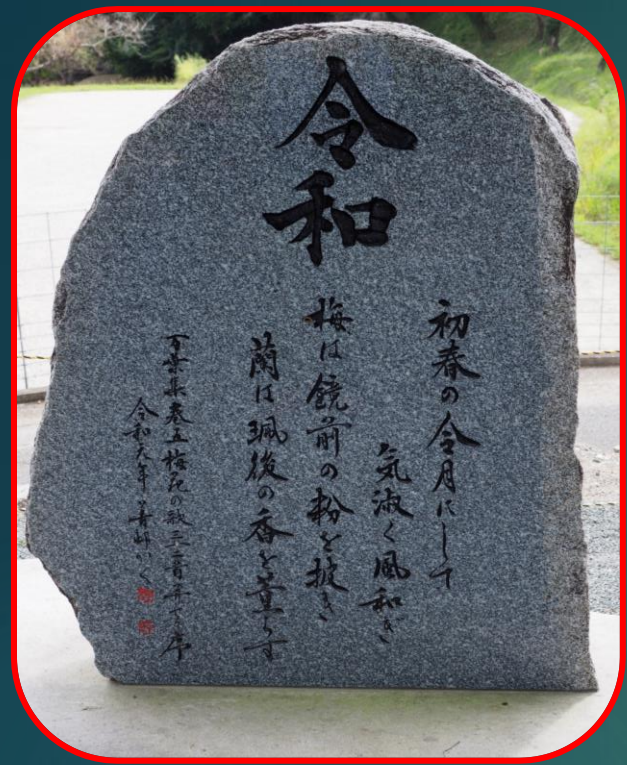 令和
初春の令月にして
気淑く風和ぎ
梅は鏡前の粉を披き
蘭は珮後の香を薫らす
万葉集巻五梅花の歌三二首并せて序
令和元年